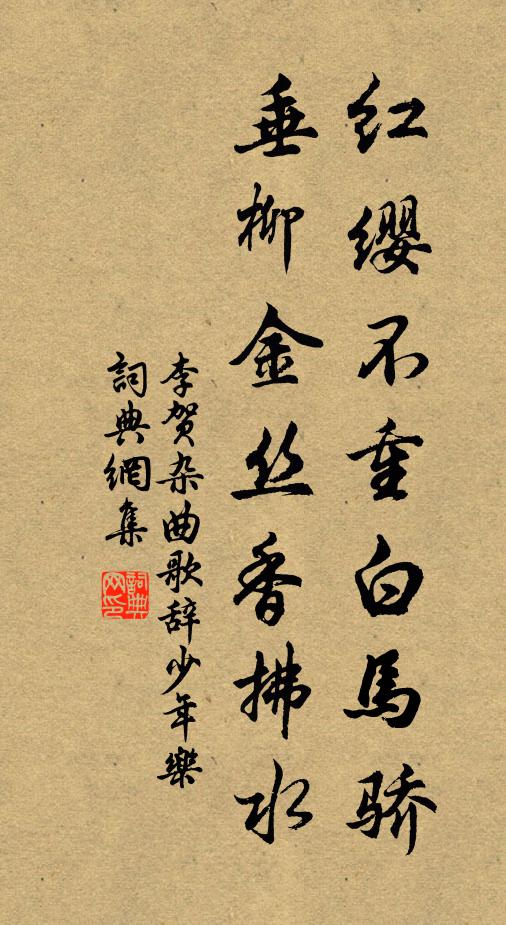 红缨不重白马骄
垂柳金丝香拂水
李贺杂曲歌辞少年樂
詞典網集
詞典网印